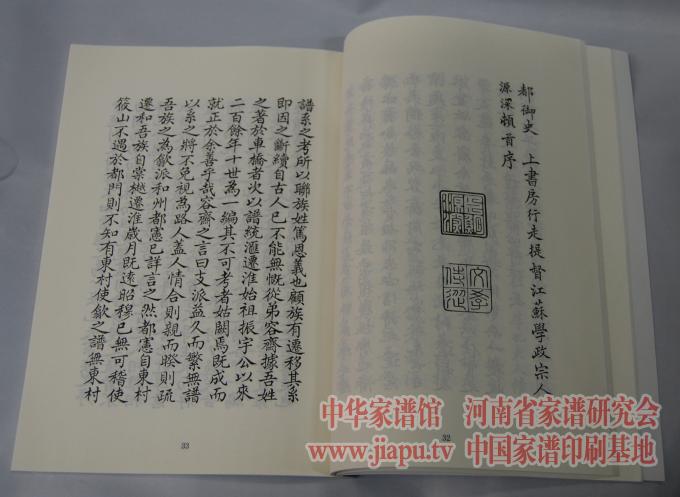 都御史 上書房行走提督江蘇學政宗人
源深頓首序
32
譜系之考所以聯族姓篤恩義也顧族有遷移其系
即因之斷續自古人已不能無慨從弟容齋據吾姓
之著於車橋者次以譜統滙遷淮始祖振宇公以來
二百餘年十世為一編其不可考者姑闕焉既成而
就正於余善乎哉容齋之言曰支派益久而繁無譜
以系之將不免視為路人蓋人情合則親而睽則疏
吾族之為歙派和州都憲已詳言之然都憲自東村
遷和吾族自棠樾遷淮歲月既遠昭穆已無可稽使
筱山不遇於都門則不知有東村使歙之譜無東村
33
中华家谱馆 河南省家谱研究会
www.jiapu.tv 中国家谱印刷基地